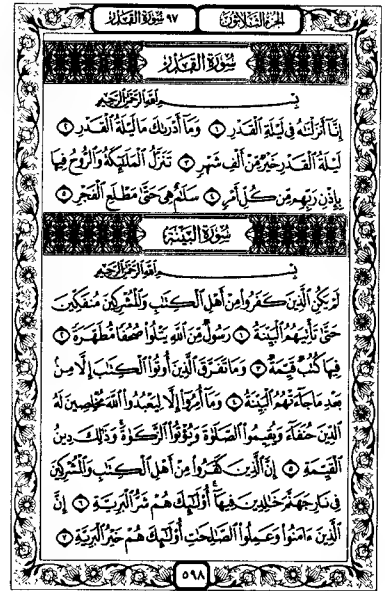 الجزء الثلاثون
٩٧ سورة القدر
سورة القدر
بسم الله الرحمن الرحيم
إِنَّا أَنزَلْنَاهُ فِي لَيْلَةِ الْقَدْرِ ١ وَمَا أَدْرَاكَ مَا لَيْلَةُ الْقَدْرِ ٢
لَيْلَةُ الْقَدْرِ خَيْرٌ مِّنْ أَلْفِ شَهْرٍ ٣ تَنَزَّلُ الْمَلَائِكَةُ وَالرُّوحُ فِيهَا
بِإِذْنِ رَبِّهِم مِّن كُلِّ أَمْرٍ ٤ سَلَامٌ هِيَ حَتَّىٰ مَطْلَعِ الْفَجْرِ ٥
سورة البينة
بسم الله الرحمن الرحيم
لَمْ يَكُنِ الَّذِينَ كَفَرُوا مِنْ أَهْلِ الْكِتَابِ وَالْمُشْرِكِينَ مُنفَكِّينَ
حَتَّىٰ تَأْتِيَهُمُ الْبَيِّنَةُ ١ رَسُولٌ مِّنَ اللَّهِ يَتْلُوا صُحُفًا مُّطَهَّرَةً ٢
فِيهَا كُتُبٌ قَيِّمَةٌ ٣ وَمَا تَفَرَّقَ الَّذِينَ أُوتُوا الْكِتَابَ إِلَّا مِن
بَعْدِ مَا جَاءَتْهُمُ الْبَيِّنَةُ ٤ وَمَا أُمِرُوا إِلَّا لِيَعْبُدُوا اللَّهَ مُخْلِصِينَ لَهُ
الدِّينَ حُنَفَاءَ وَيُقِيمُوا الصَّلَوٰةَ وَيُؤْتُوا الزَّكَوٰةَ وَذَٰلِكَ دِينُ
الْقَيِّمَةِ ٥ إِنَّ الَّذِينَ كَفَرُوا مِنْ أَهْلِ الْكِتَابِ وَالْمُشْرِكِينَ
فِي نَارِ جَهَنَّمَ خَالِدِينَ فِيهَا أُولَٰئِكَ هُمْ شَرُّ الْبَرِيَّةِ ٦ إِنَّ
الَّذِينَ ءَامَنُوا وَعَمِلُوا الصَّالِحَاتِ أُولَٰئِكَ هُمْ خَيْرُ الْبَرِيَّةِ ٧
٥٩٨